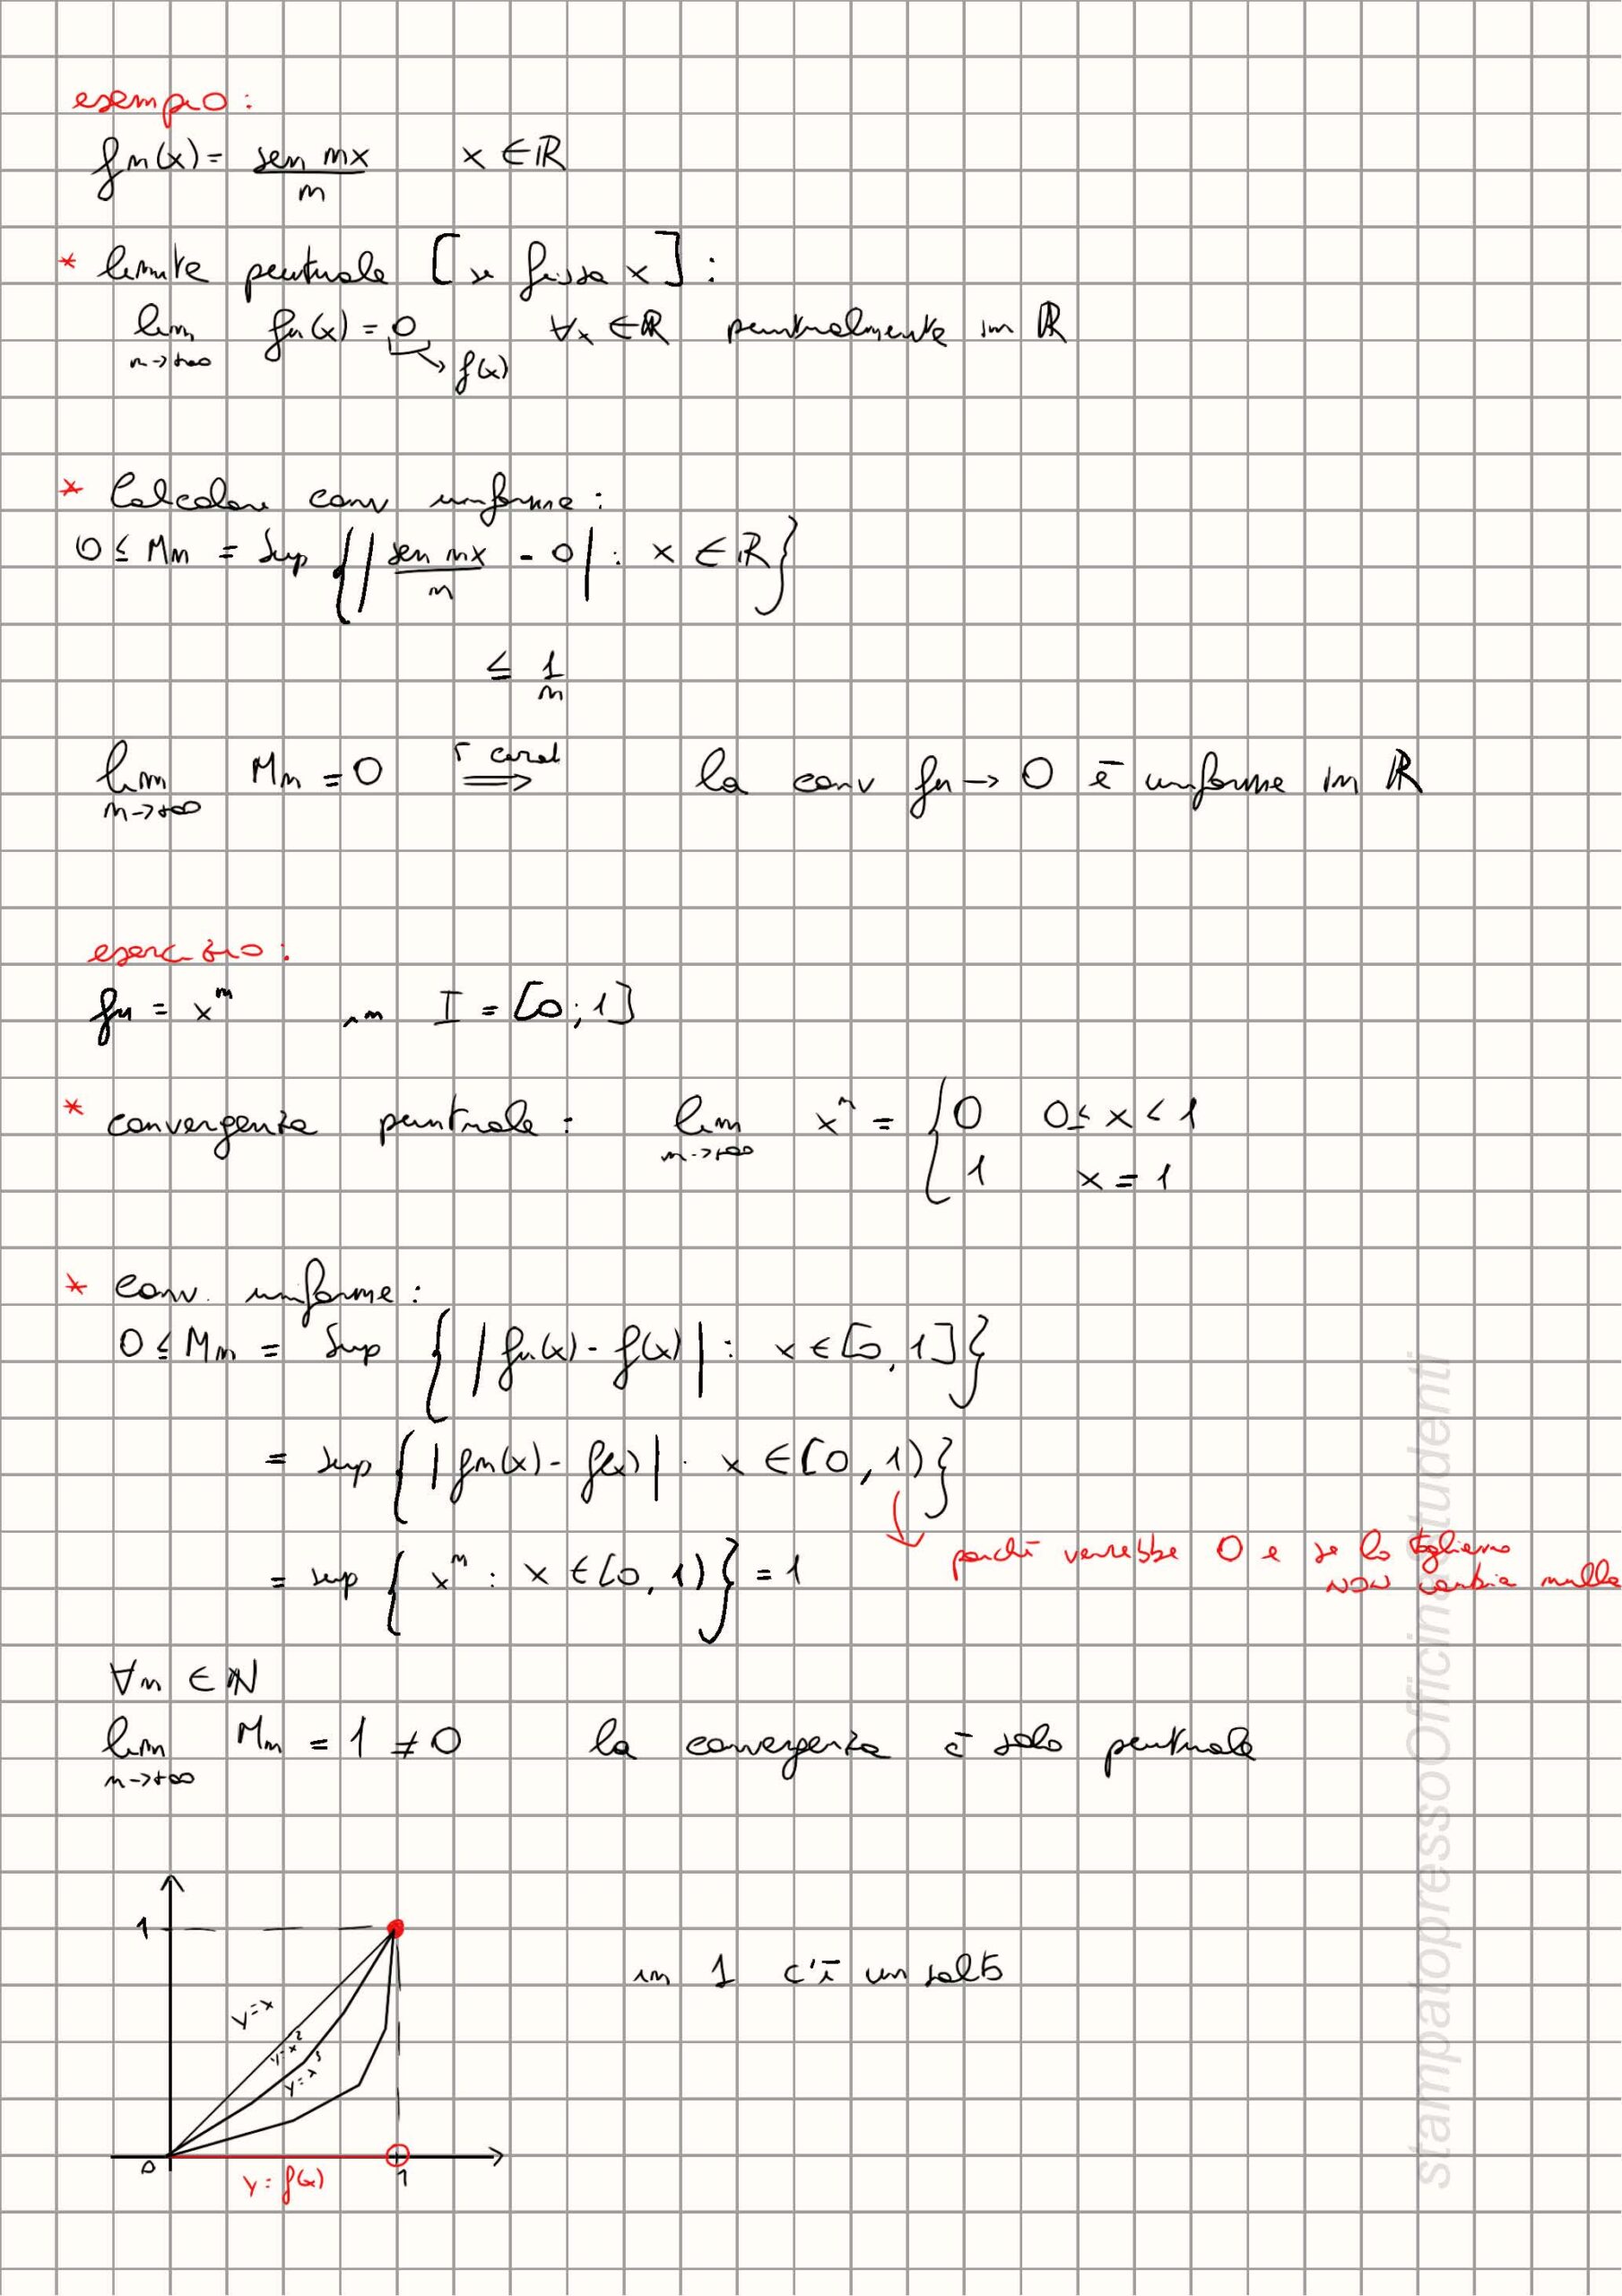 esempio:
fn(x) = sen nx / n    x ∈ ℝ
* limite puntuale [se fissa x]:
lim n→+∞ fn(x) = 0 → f(x)    ∀x ∈ ℝ puntualmente in ℝ
* Calcolare conv uniforme:
0 ≤ Mn = sup { | sen nx / n - 0 | : x ∈ ℝ }
≤ 1/n
lim n→+∞ Mn = 0 ⟹ la conv fn → 0 è uniforme in ℝ
esercizio:
fn = xⁿ    in I = [0;1]
* convergenza puntuale: lim n→+∞ xⁿ = { 0    0 ≤ x < 1
1    x = 1
* conv. uniforme:
0 ≤ Mn = sup { | fn(x) - f(x) | : x ∈ [0,1] }
= sup { | fn(x) - f(x) | : x ∈ [0,1) }
= sup { xⁿ : x ∈ [0,1) } = 1
→ perché verrebbe 0 e se lo togliamo
NON cambia nulla
∀n ∈ ℕ
lim n→+∞ Mn = 1 ≠ 0    la convergenza è solo puntuale
1
in 1 c'è un salto
y=x
y=x²
y=x³
0
y=f(x)
1
stampatopressoOfficinastudenti